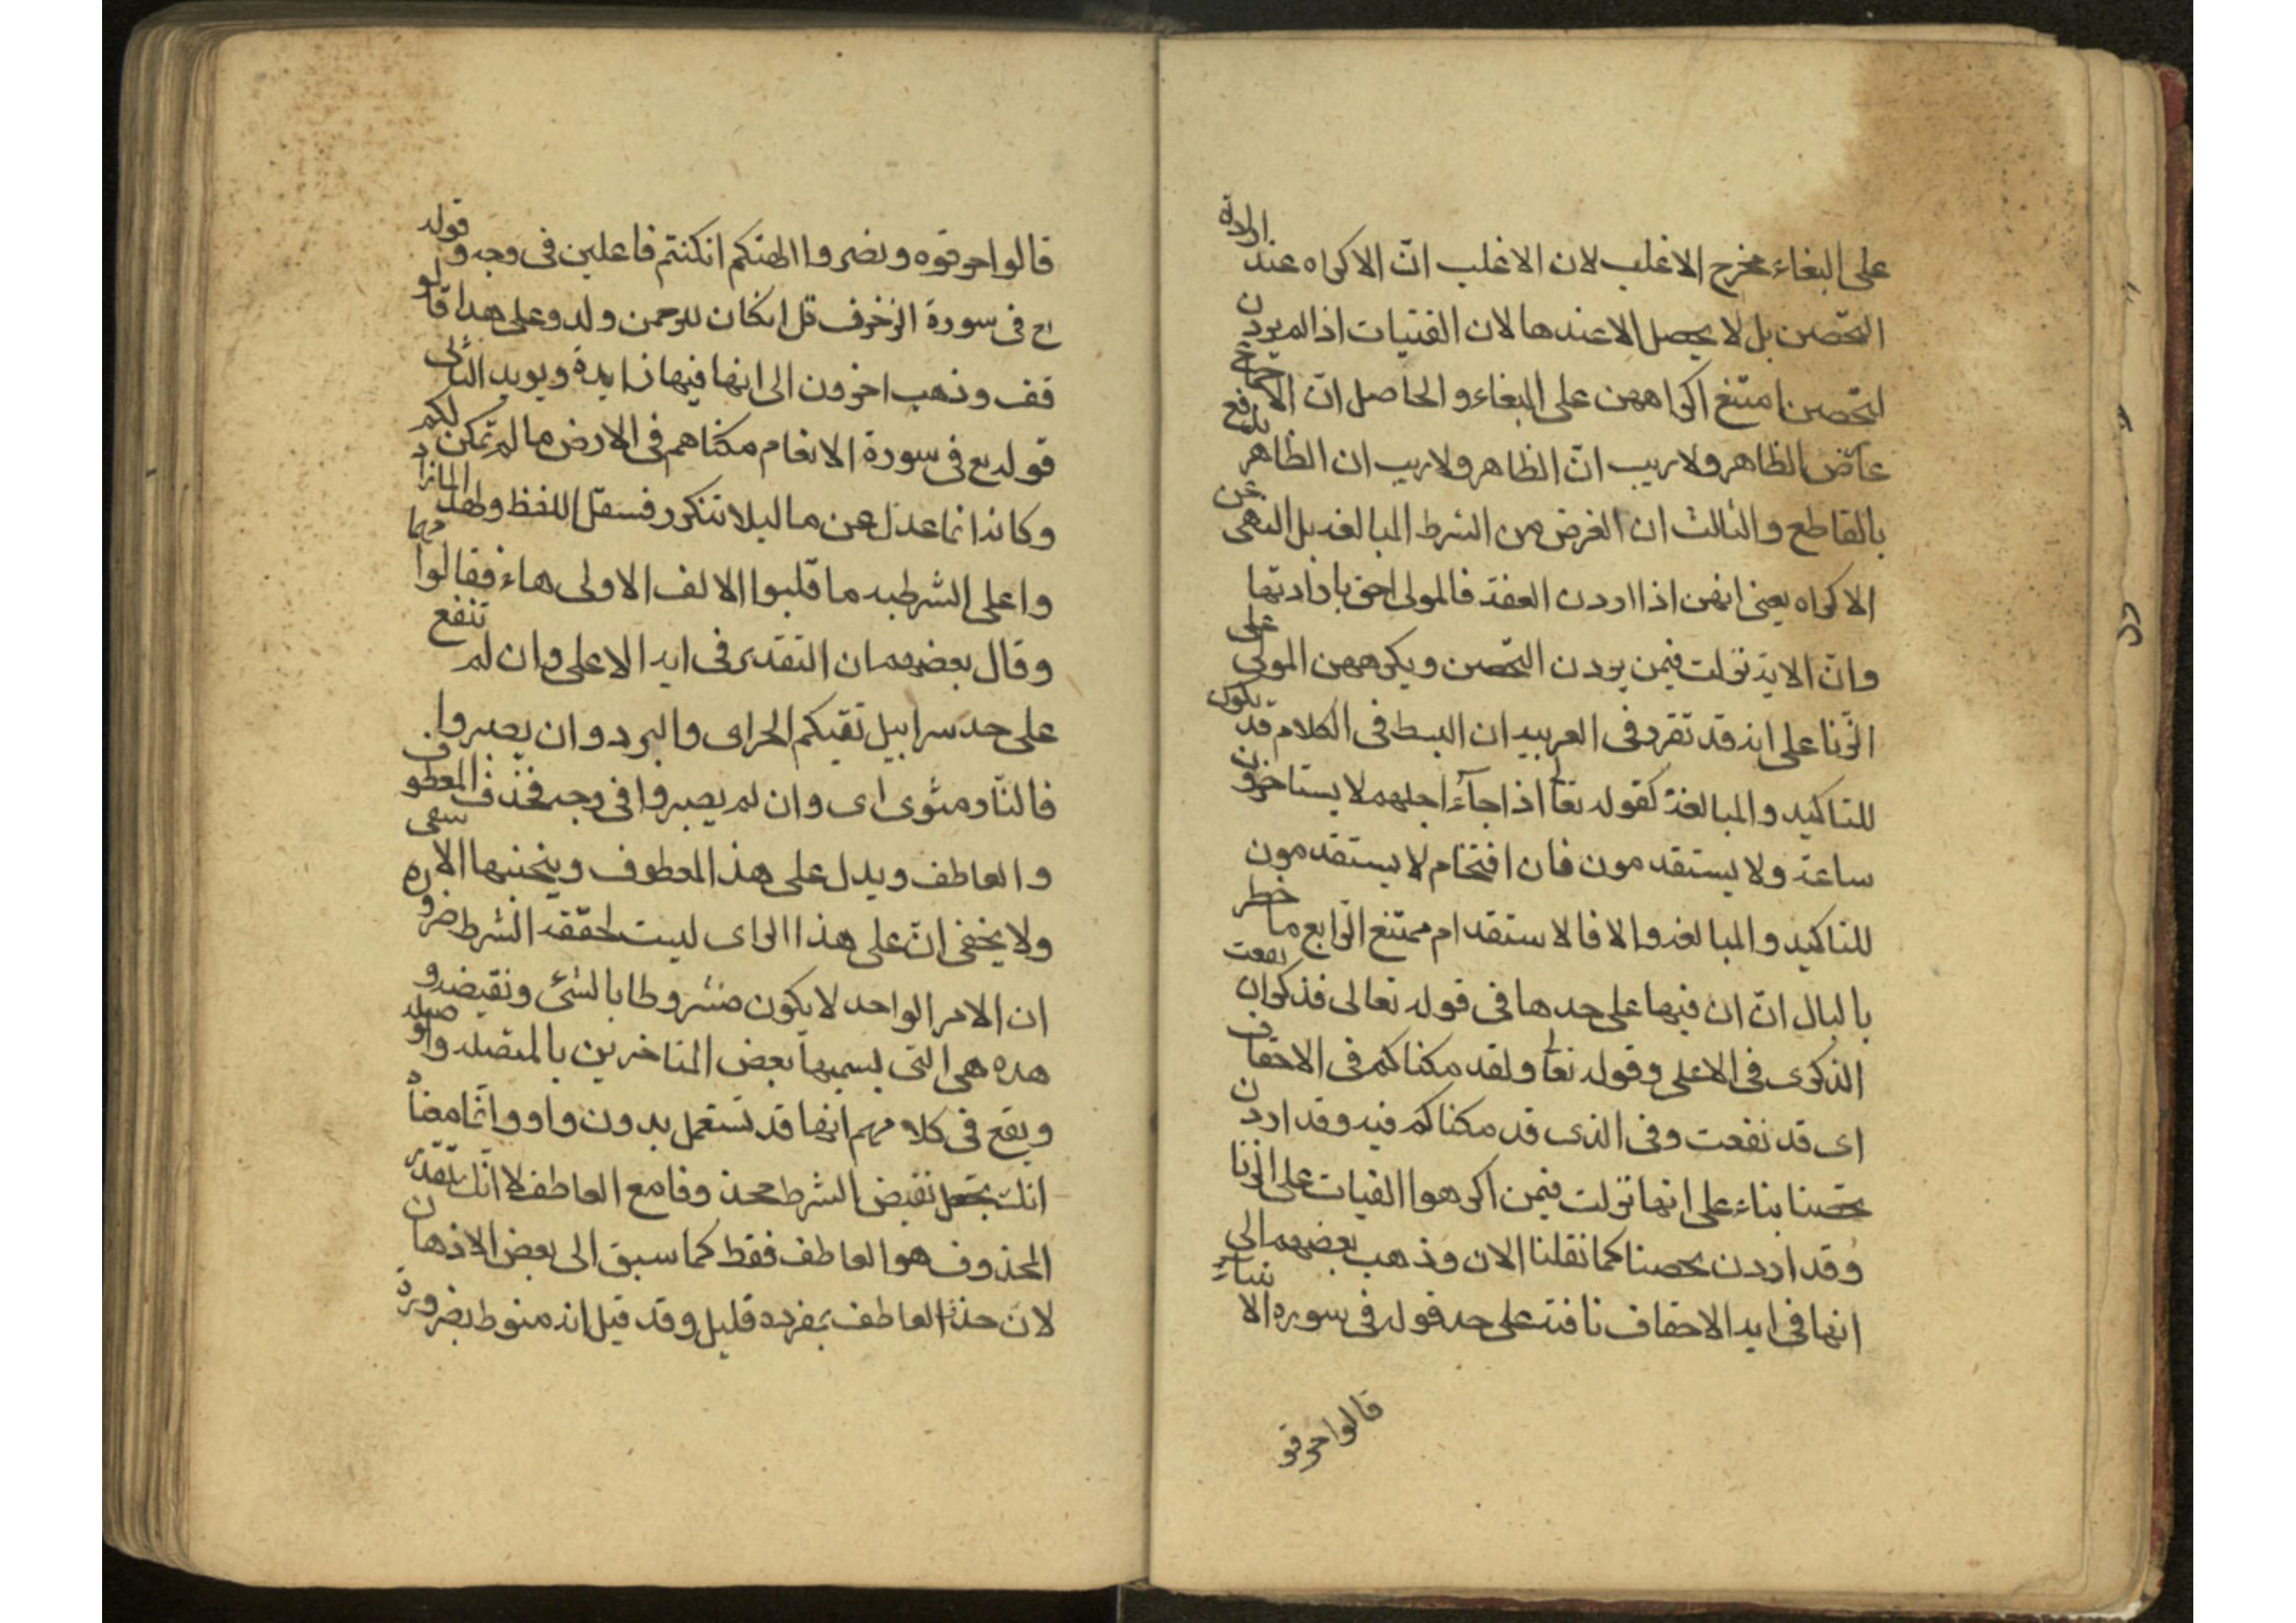 على البغاء مخرج الاغلب لان الاغلب انّ الاكراه عند ارادة
التحصن بل لا يحصل الا عندها لان الفتيات اذا لم يردن
التحصن امتنع اكراههن على البغاء والحاصل انّ الاجماع
عارض الظاهر ولا ريب انّ الظاهر ولا ريب ان الظاهر يدفع
بالقاطع والثالث ان الغرض من الشرط المبالغة بل النهى عن
الاكراه يعنى انهن اذا اردن العفة فالمولى احق بارادتها
وانّ الاية نزلت فيمن يردن التحصن ويكرههن المولى على
الزنا على انه قد تقرر فى العربيه ان البسط فى الكلام قد يكون
للتاكيد والمبالغة كقوله تعا اذا جآء اجلهم لا يستاخرون
ساعة ولا يستقدمون فان افتخام لا يستقدمون
للتاكيد والمبالغة والا فالاستقدام ممتنع الرّابع ما خطر
بالبال انّ ان فيها على حدها فى قوله تعالى فذكر ان نفعت
الذكرى فى الاعلى وقوله تعا ولقد مكناكم فى الاحقاف
اى قد نفعت وفى الذى قد مكناكم فيه وقد اردن
تحصنا بناء على انها نزلت فيمن اكرهوا الفيات على الزنا
وقد اردن تحصنا كما نقلنا الان وذهب بعضهم الى
انها فى اية الاحقاف نافية على حد قوله فى سوره الانبياء
قالوا حرقو
قالوا حرقوه ونضروا الهتكم انكنتم فاعلين فى وجه وقوله
تع فى سورة الزخرف قل انكان للرحمن ولد وعلى هذا قالو
قف وذهب اخرون الى انها فيها زايدة ويويد الثانى
قوله تع فى سورة الانعام مكناهم فى الارض ما لم نمكن لكم
وكانه انما عدل عن ما ليلا تتكرر فسقل اللفظ ولهذا لما زاد
وا على الشرطيه ما قلبوا الالف الاولى هاء فقالوا مهما
وقال بعضهم ان التقدير فى اية الاعلى وان لم تنفع
على حد سرابيل تقيكم الحر اى والبرد وان يصبروا
فالنار مثوى اى وان لم يصبروا فى وجه فحذف المعطوف
والعاطف ويدل على هذ المعطوف ويتجنبها الاشقى
ولا يخفى انّ على هذا الراى ليست لحققه الشرط ضروره
ان الامر الواحد لا يكون مشروطا بالشئ ونقيضه و
هذه هى التى يسميها بعض المتاخرين بالمتصله والوصيله
ويقع فى كلامهم انها قد تستعمل بدون واو وانما معناه
انك تجعل نقيض الشرط محذوفا مع العاطف لا انك تقدر
المحذوف هو العاطف فقط كما سبق الى بعض الاذهان
لان حذف العاطف بمفرده قليل وقد قيل انه منوط بضرورة